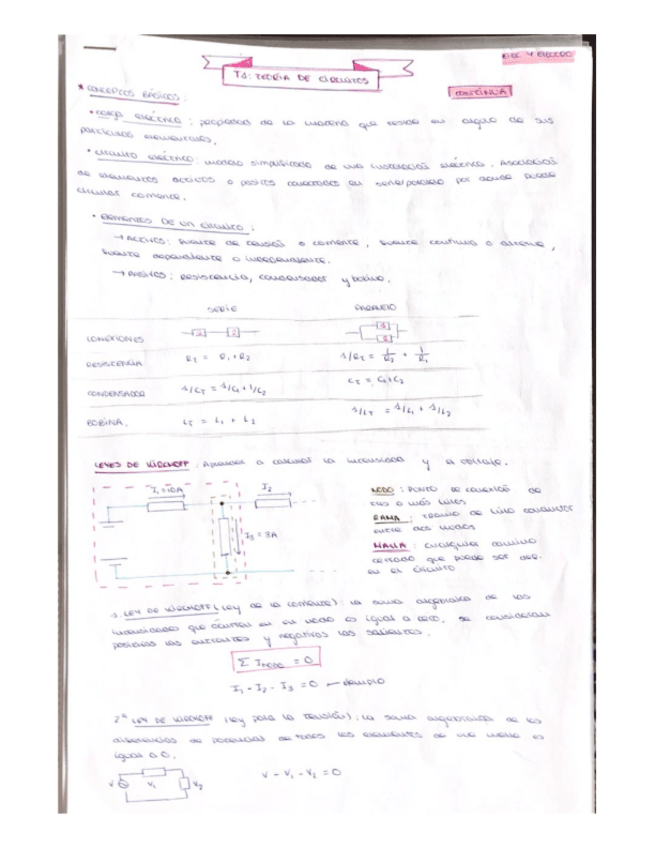 ELEC. Y ELECTRO
T1: TEORÍA DE CIRCUITOS
* CONCEPTOS BÁSICOS:
CONTINUA
• carga eléctrica: propiedad de la materia que reside en alguno de sus
partículas elementales.
• circuito eléctrico: modelo simplificado de una instalación eléctrica. Asociación
de elementos activos o pasivos conectados en serie/paralelo por donde puede
circular corriente.
• ELEMENTOS DE UN CIRCUITO:
→ ACTIVOS: fuente de tensión o corriente, fuente continua o alterna,
fuente dependiente o independiente.
→ PASIVOS: resistencia, condensador y bobina.
SERIE PARALELO
CONEXIONES 1 2 1 2
RESISTENCIA RT = R1+R2 1/RT = 1/R2 + 1/R1
CONDENSADOR 1/CT = 1/C1+1/C2 CT = C1+C2
BOBINA. LT = L1 + L2 1/LT = 1/L1 + 1/L2
LEYES DE KIRCHOFF: Aprender a calcular la intensidad y el voltaje.
I1=10A I2
I3 = 3A
NODO: PUNTO de conexión de
tres o más hilos
RAMA: TRAMO de hilo conductor
entre dos nodos
MALLA: cualquier camino
cerrado que puede ser
en el circuito
1. LEY DE KIRCHOFF (Ley de la corriente): la suma algebraica de las
intensidades que en un nodo es igual a cero, se consideran
positivas las entrantes y negativas las salientes.
Σ I NODO = 0
I1 - I2 - I3 = 0 ← ejemplo
2ª LEY DE KIRCHOFF (Ley para la tensión): la suma algebraica de las
diferencias de potencial de todos los elementos de una malla es
igual a 0.
V V1 V2
V - V1 - V2 = 0